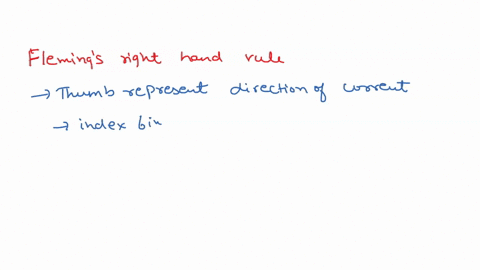 Fleming's right hand rule
→ Thumb represent direction of current
→ index